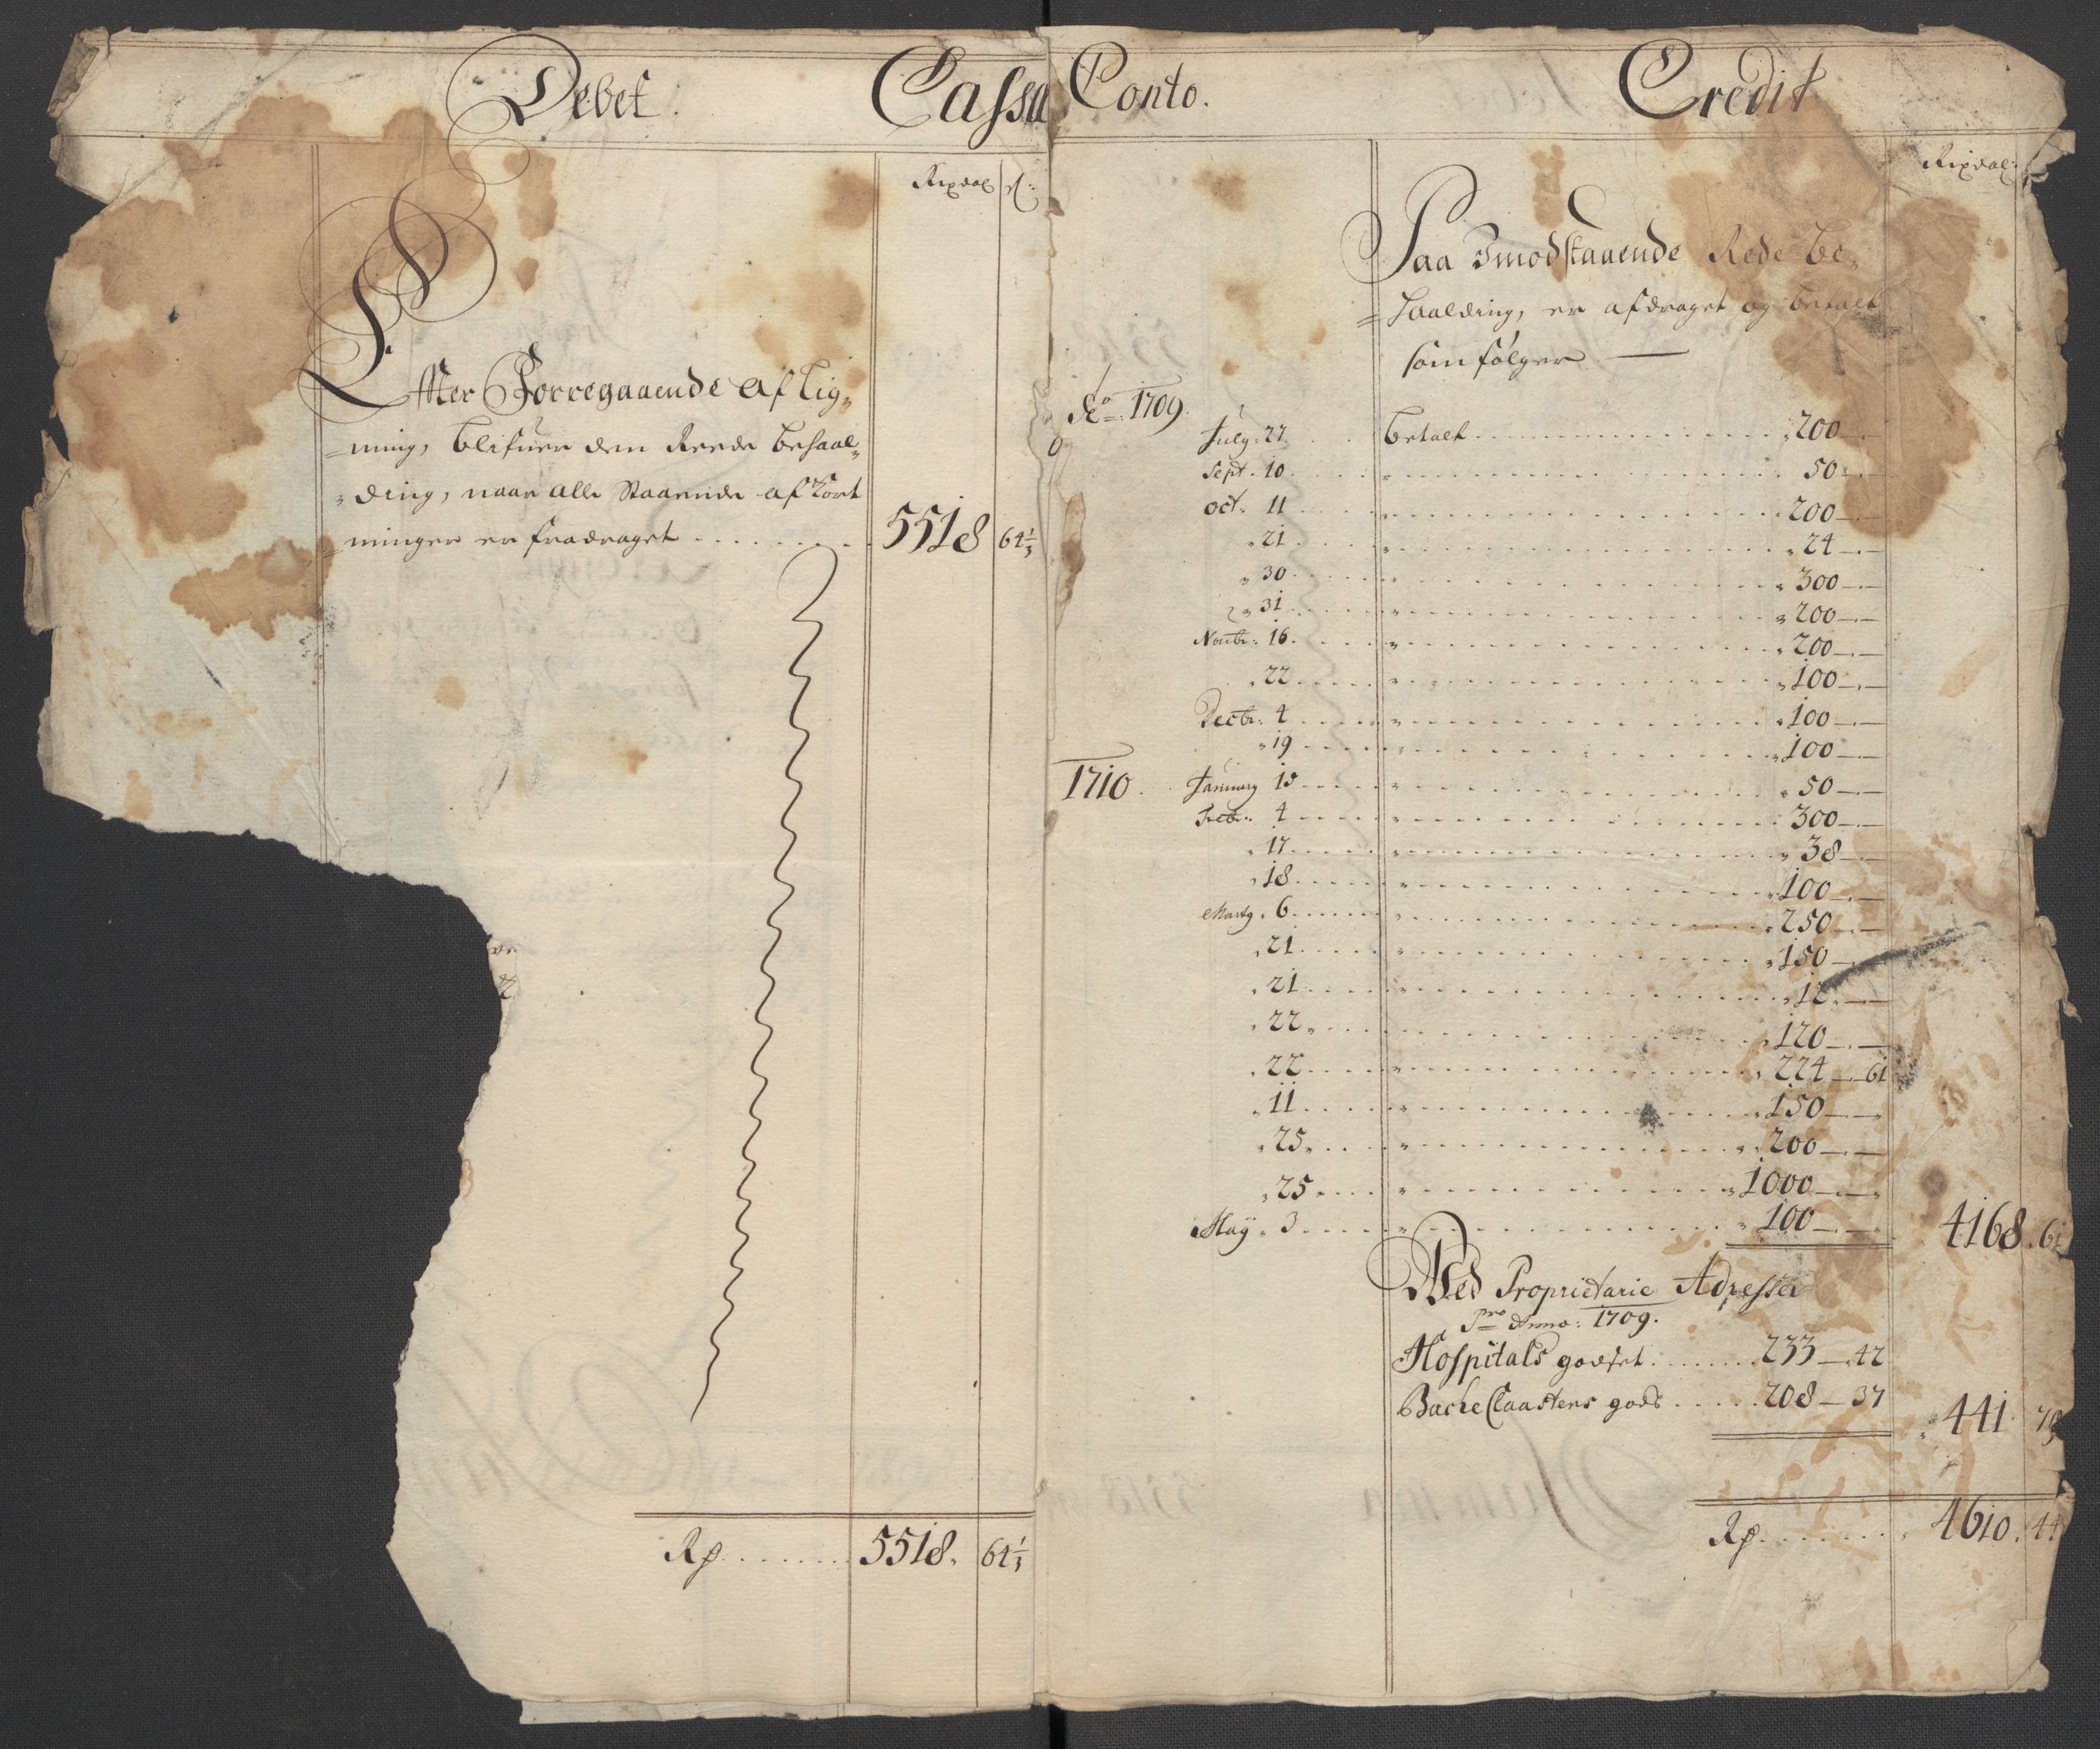 Debet. Cassa Conto. Credit
Rixdal ß:
Effter Forregaaende aflig-
=ning, blifuer dem Reede behaal-
=ding, naar alle Staaende afkort
=ninger er fradraget . . . . . . . 5518 64⅓
Rß . . . . . . . 5518. 64⅓
Rixdal:
Paa Imodstaaende Rede be-
=haalding, er afdraget og betalt
som følger ——
Ao: 1709.
July. 27 . . betalt . . . . . 200 —
Sept. 10. . . . . " . . . . . 50 —
oct. 11 . . . . . " . . . . . 200 —
" 21 . . . . . " . . . . . 24 —
" 30 . . . . . " . . . . . 300 —
" 31 . . . . . " . . . . . 200 —
Novbr: 16. . . . . " . . . . . 200 —
" 22 . . . . . " . . . . . 100 —
Decbr: 4 . . . . . " . . . . . 100 —
" 19 . . . . . " . . . . . 100 —
1710. January 15 . . . . . " . . . . . 50 —
Febr: 4 . . . . . " . . . . . 300 —
" 17 . . . . . " . . . . . 38 —
" 18 . . . . . " . . . . . 100 —
Marty. 6 . . . . . " . . . . . 250 —
" 21 . . . . . " . . . . . 150 —
" 21 . . . . . " . . . . . 12 —
" 22 . . . . . " . . . . . 120 —
" 22 . . . . . " . . . . . 224 — 61
" 11 . . . . . " . . . . . 150 —
" 25 . . . . . " . . . . . 200 —
" 25 . . . . . " . . . . . 1000 —
Maÿ. 3 . . . . . " . . . . . 100 — 4168. 61
Ved Proprietarie Adresser
pro Anno: 1709.
Hospitals godset . . . . . 233 — 42
Bache Claasters gods . . . . . 208 — 37 441. 79
Rß . . . . . . . 4610. 44